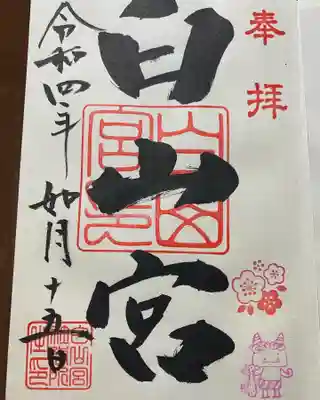 奉拝
白山宮
令和四年 如月 十五日